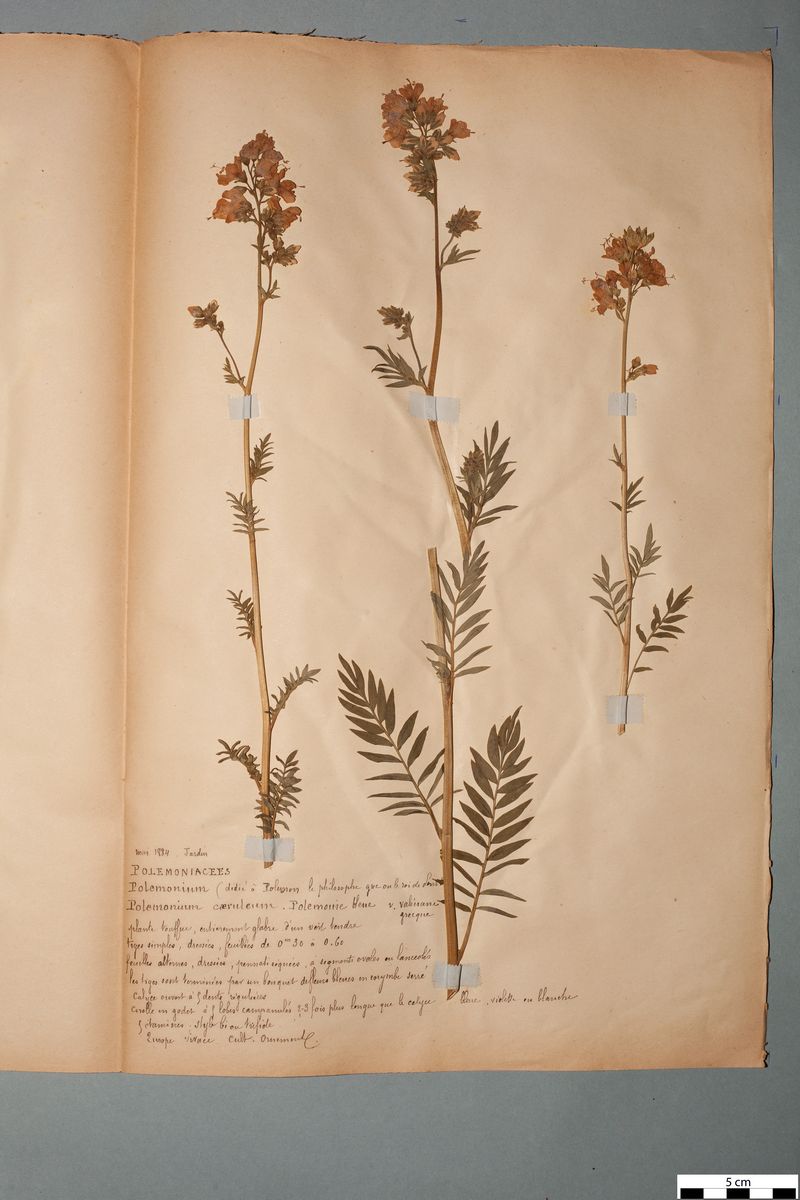 mai 1884 Jardin
POLEMONIACEES
Polemonium (dédié à Polemon le philosophe grec ou le roi de
Polemonium cæruleum. Polemoine bleue v. valériane
grecque
plante touffue, entièrement glabre d'un vert tendre
tiges simples, dressées, feuillées de 0m30 à 0.60
feuilles alternes, dressées, pennatiséquées, à segments ovales ou lancéolés
les tiges sont terminées par un bouquet de fleurs bleues en corymbe serré
Calyce ouvert à 5 dents régulières
Corolle en godet à 5 lobes campanulés 2-3 fois plus longue que le calyce bleue, violette ou blanche
5 étamines. style bi ou trifide
Europe vivace Cult. Ornement
5 cm